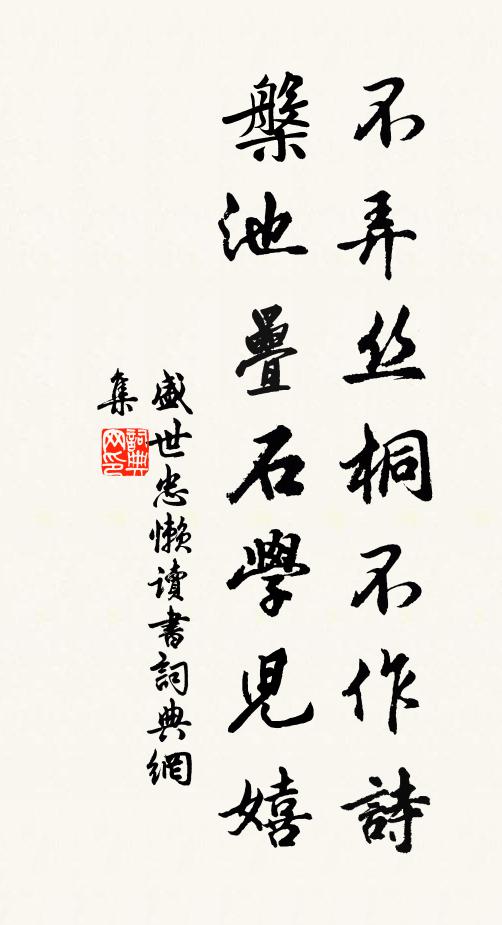 不弄丝桐不作詩
槃池疊石學児嬉
盛世忠懶讀書詞典網
集
詞典
网印